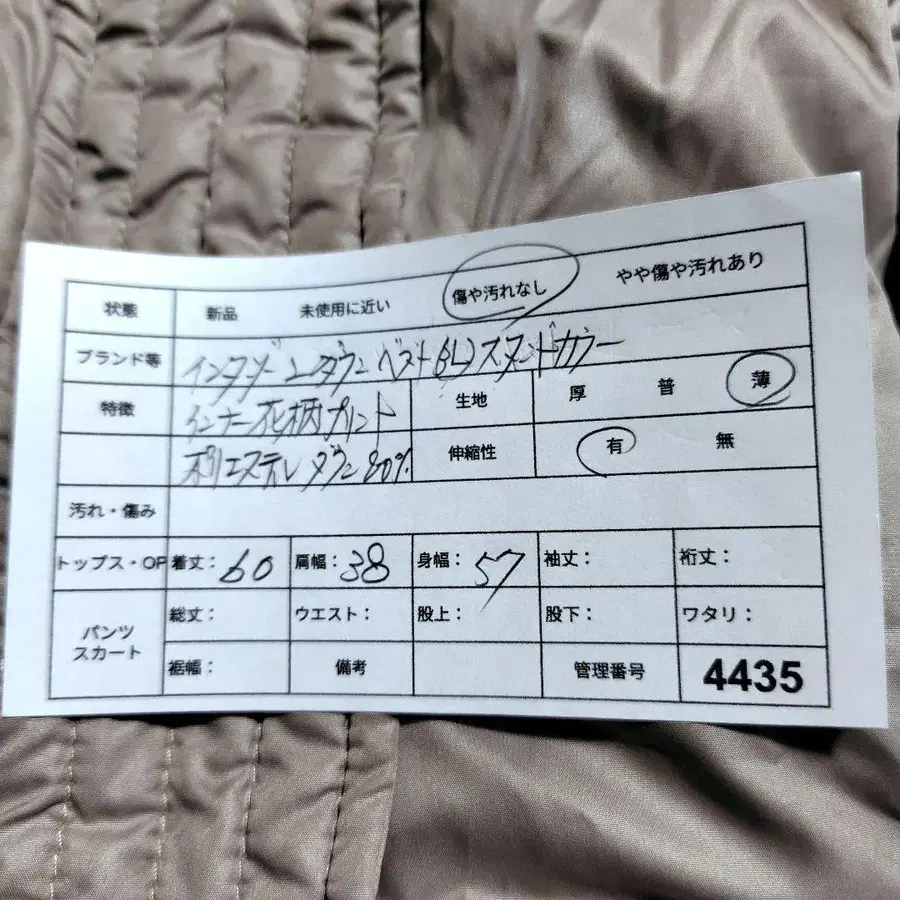 状態 新品 未使用に近い 傷や汚れなし やや傷や汚れあり
ブランド等 ダウンベスト スタンドカラー
特徴 インナー花柄プリント 生地 厚 普 薄
ポリエステル ダウン80% 伸縮性 有 無
汚れ・傷み
トップス・OP 着丈: 60 肩幅: 38 身幅: 57 袖丈: 裄丈:
パンツ スカート 総丈: ウエスト: 股上: 股下: ワタリ:
裾幅: 備考 管理番号 4435